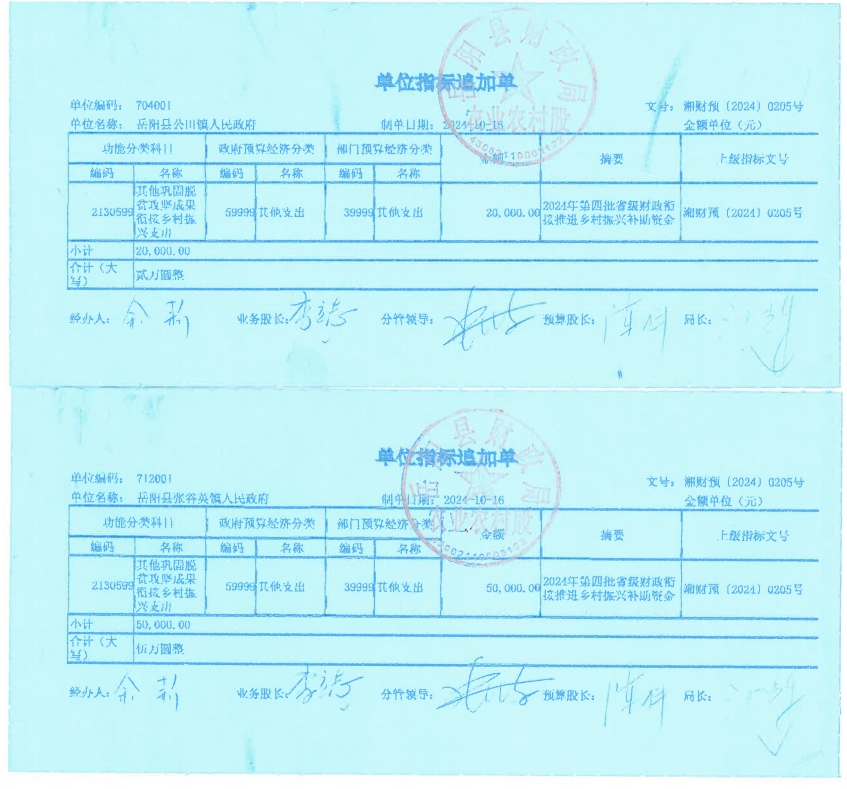 单位指标追加单
单位编码： 704001 文号： 湘财预〔2024〕0205号
单位名称： 岳阳县公田镇人民政府 制单日期： 2024-10-16 金额单位（元）
功能分类科目 政府预算经济分类 部门预算经济分类 金额 摘要 上级指标文号
编码 名称 编码 名称 编码 名称
2130599 其他巩固脱贫攻坚成果衔接乡村振兴支出 59999 其他支出 39999 其他支出 20,000.00 2024年第四批省级财政衔接推进乡村振兴补助资金 湘财预〔2024〕0205号
小计 20,000.00
合计（大写） 贰万圆整
经办人： 余 业务股长： 李 分管领导： 预算股长： 陈 局长：
岳阳县财政局
农业农村股
单位指标追加单
单位编码： 712001 文号： 湘财预〔2024〕0205号
单位名称： 岳阳县张谷英镇人民政府 制单日期： 2024-10-16 金额单位（元）
功能分类科目 政府预算经济分类 部门预算经济分类 金额 摘要 上级指标文号
编码 名称 编码 名称 编码 名称
2130599 其他巩固脱贫攻坚成果衔接乡村振兴支出 59999 其他支出 39999 其他支出 50,000.00 2024年第四批省级财政衔接推进乡村振兴补助资金 湘财预〔2024〕0205号
小计 50,000.00
合计（大写） 伍万圆整
经办人： 余 业务股长： 李 分管领导： 预算股长： 陈 局长：
岳阳县财政局
农业农村股